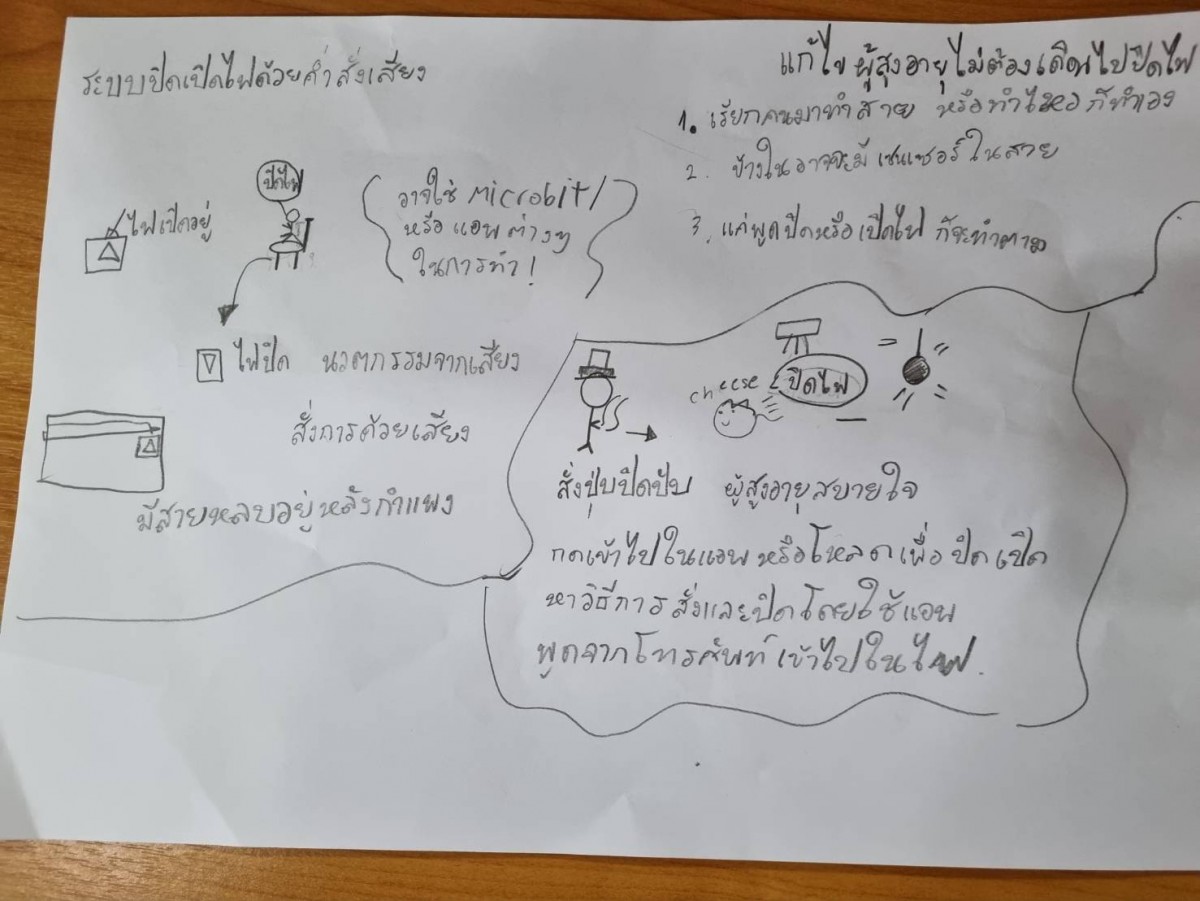 ระบบปิดเปิดไฟด้วยคำสั่งเสียง
ปิดไฟ
ไฟเปิดอยู่
อาจใช้ microbit/
หรือ แอพต่างๆ
ในการทำ!
ไฟปิด นวตกรรมจากเสียง
สั่งการด้วยเสียง
มีสายหลบอยู่หลังกำแพง
แก้ไข ผู้สูงอายุไม่ต้องเดินไปปิดไฟ
1. เรียกคนมาทำสาย หรือทำไหวก็ทำเอง
2. ข้างในอาจจะมีเซนเซอร์ในสาย
3. แค่พูดปิดหรือเปิดไฟ ก็จะทำตาม
cheese
ปิดไฟ
สั่งปุ๊บปิดปั๊บ ผู้สูงอายุสบายใจ
กดเข้าไปในแอพ หรือโหลดเพื่อ ปิด เปิด
หาวิธีการสั่งและปิดโดยใช้แอพ
พูดจากโทรศัพท์เข้าไปในไฟ.